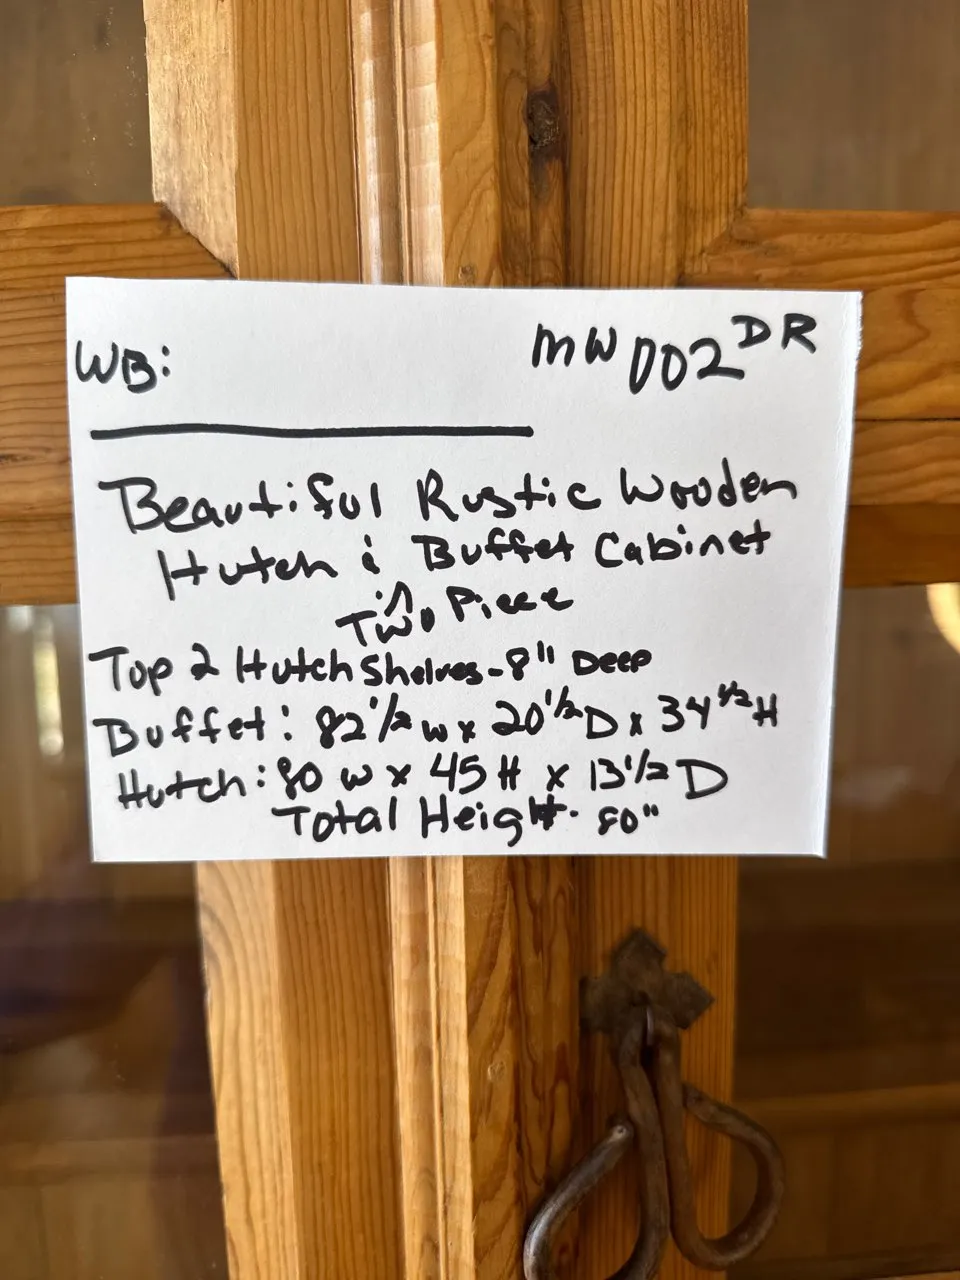 WB:
MW 002 DR
Beautiful Rustic Wooden
Hutch & Buffet Cabinet
in Two Piece
Top 2 Hutch Shelves - 8" Deep
Buffet: 82 1/2 w x 20 1/2 D x 34 1/2 H
Hutch: 80 w x 45 H x 13 1/2 D
Total Height. 80"